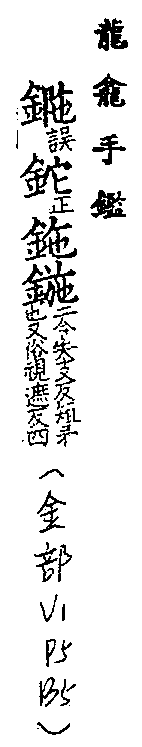 龍龕手鑑
誤鉈正鉇鍦二今失支反短矛也又俗視遮反四（金部V1P5B5）